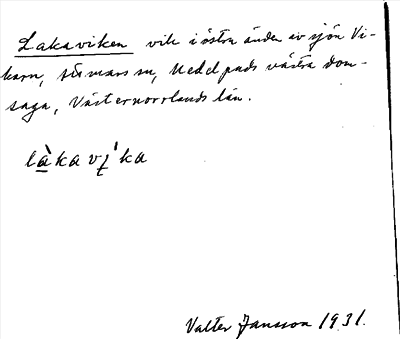 Lakaviken vik i östra änden av sjön Vi-
karn, Stirnäs sn, Medelpads västra dom-
saga, Västernorrlands län.
làkavi̯'ka
Valter Jansson 1931.